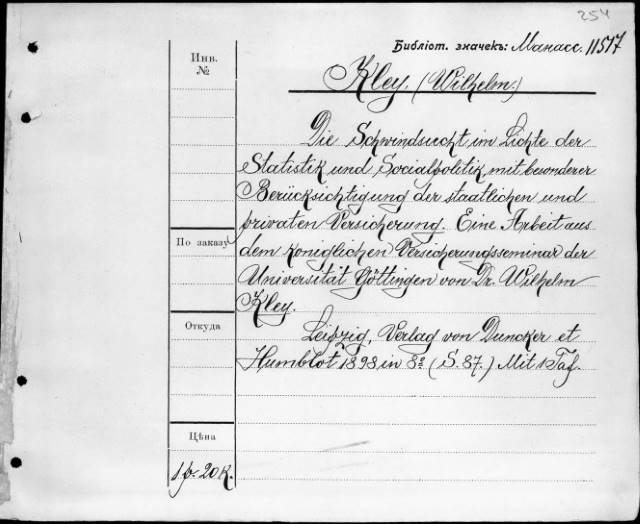 254
Библіот. значекъ: Манасс. 11517
Инв.
№
Kley. (Wilhelm.)
Die Schwindsucht im Lichte der
Statistik und Socialpolitik mit besonderer
Berücksichtigung der staatlichen und
privaten Versicherung. Eine Arbeit aus
dem königlichen Versicherungsseminar der
Universität Göttingen von Dr. Wilhelm
Kley.
По заказу
Откуда
Leipzig, Verlag von Duncker et
Humblot 1898 in 8º (S. 87.) Mit 1 Taf.
Цѣна
1 р. 20 к.